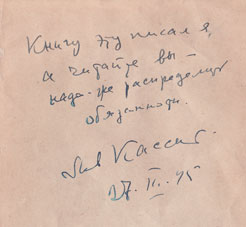 Книгу эту писал я,
а читайте вы —
надо же распределить
обязанности.
Лев Кассиль.
27. II. 45